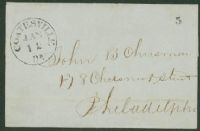 5
COATESVILLE
JAN
12
Pa
John B Chrisman
178 Chesnut Street
Philadelphia